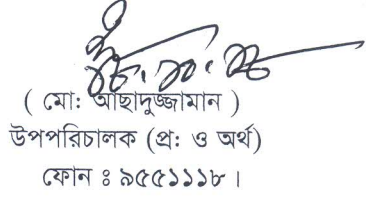 ( মো: আছাদুজ্জামান )
উপপরিচালক (প্র: ও অর্থ)
ফোন ঃ ৯৫৫১১১৮।